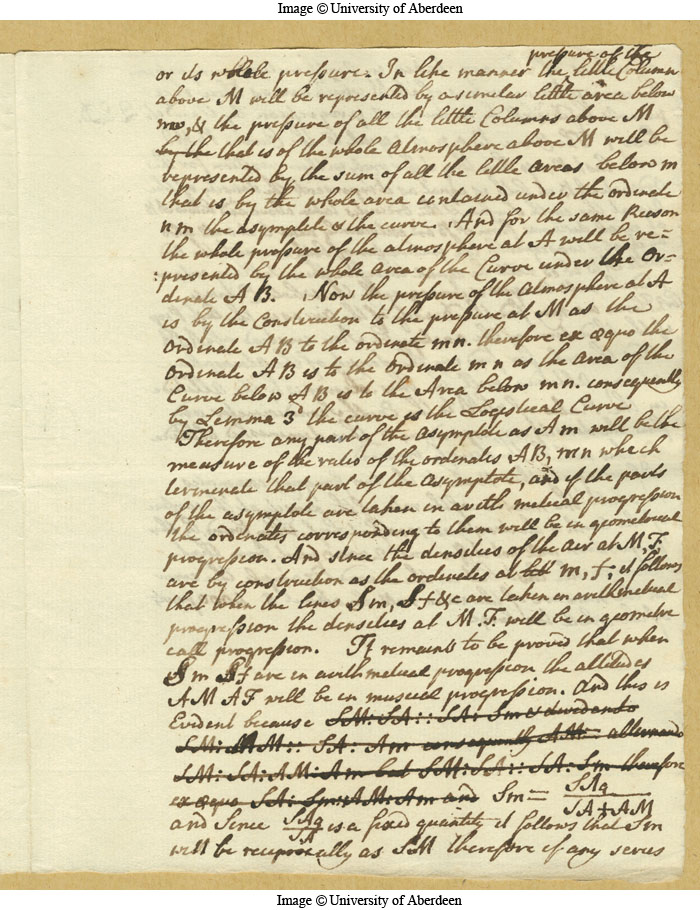 Image © University of Aberdeen
pressure of the
or its whole pressure. In like manner the little Column
above M will be represented by a similar little area below
m, & the pressure of all the little Columns above M
by the that is of the whole Atmosphere above M will be
represented by the sum of all the little areas below m
that is by the whole area contained under the ordinate
n m the asymptote & the curve. And for the same Reason
the whole pressure of the atmosphere at A will be re=
:presented by the whole area of the Curve under the Or=
dinate A B. Now the pressure of the Atmosphere at A
is by the Construction to the pressure at M as the
Ordinate A B to the ordinate m n. therefore ex æquo the
Ordinate A B is to the Ordinate m n as the area of the
Curve below A B is to the Area below m n. consequently
by Lemma 3d the curve is the Logistical Curve
Therefore any part of the Asymptote as A m will be the
measure of the ratio of the ordinates A B, m n which
terminate that part of the Asymptote, and if the parts
of the asymptote are taken in arithmetical progression
the ordinates corresponding to them will be in geometrical
progression. And since the densities of the air at M, F,
are by construction as the ordinates at m, f; it follows
that when the lines S m, S f &c are taken in arithmetical
progression the densities at M. F. will be in geometri
call progression. It remains to be proved that when
S m S f are in arithmetical progression the altitudes
A M A F will be in musical progression. And this is
Evident because SM: SA:: SA: Sm & dividendo
SM: AM:: SA: Am consequently AM: alternando
SM: SA: AM: Am but SM: SA:: SA: Sm therefore
ex æquo SA: Sm:: AM: Am and Sm = SAq / SA + AM
and Since SAq / SA is a fixed quantity it follows that Sm
will be reciprocally as SM therefore if any series
Image © University of Aberdeen